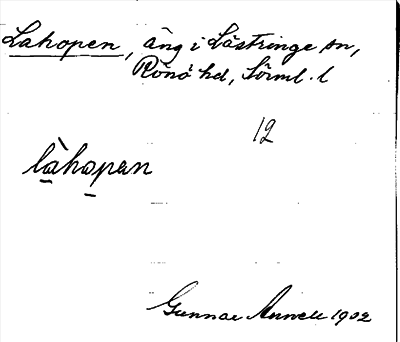 Lahopen, äng i Lästringe sn,
Rönö hd, Sörml. l
12
làhopen
Gunnar 1902